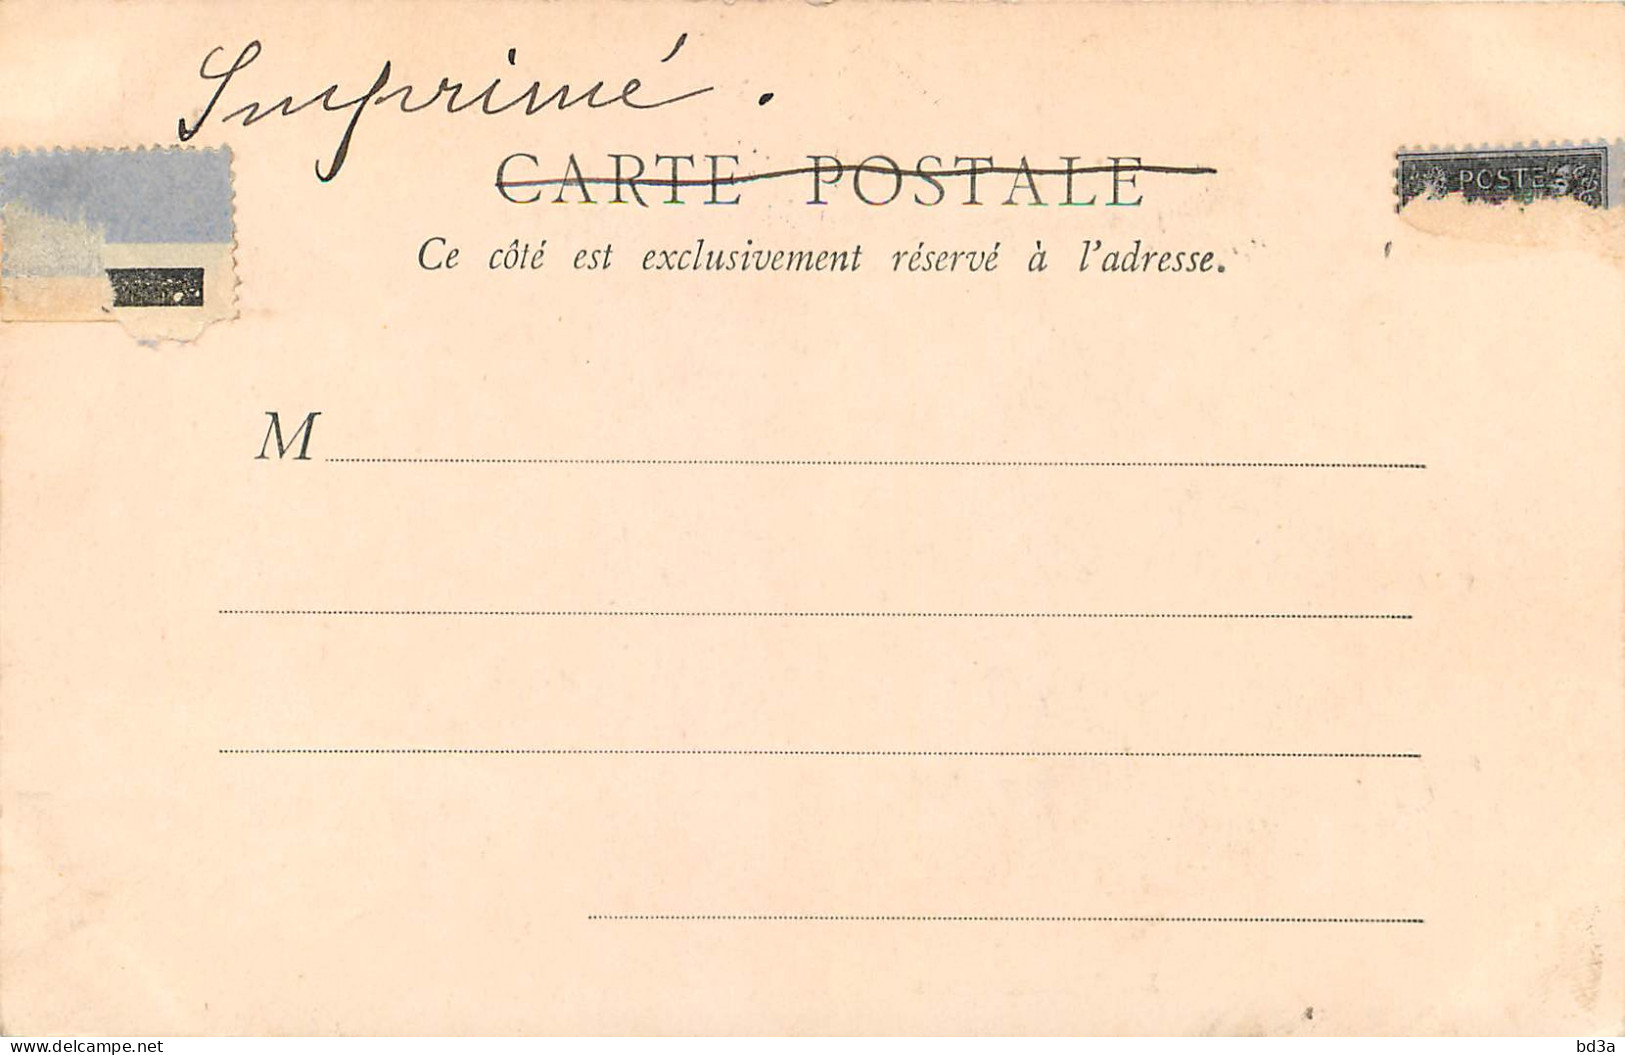 Imprimé.
CARTE POSTALE
POSTES
Ce côté est exclusivement réservé à l'adresse.
M
delcampe.net
bd3a